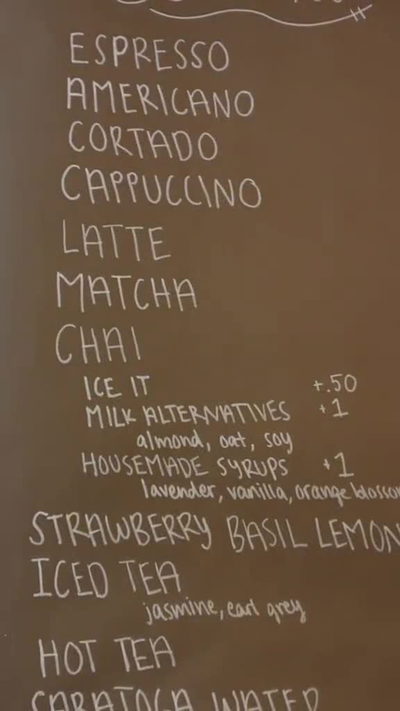 ESPRESSO
AMERICANO
CORTADO
CAPPUCCINO
LATTE
MATCHA
CHAI
ICE IT +.50
MILK ALTERNATIVES +1
almond, oat, soy
HOUSEMADE SYRUPS +1
lavender, vanilla, orange blosso
STRAWBERRY BASIL LEMON
ICED TEA
jasmine, earl grey
HOT TEA
SARATOGA WATER